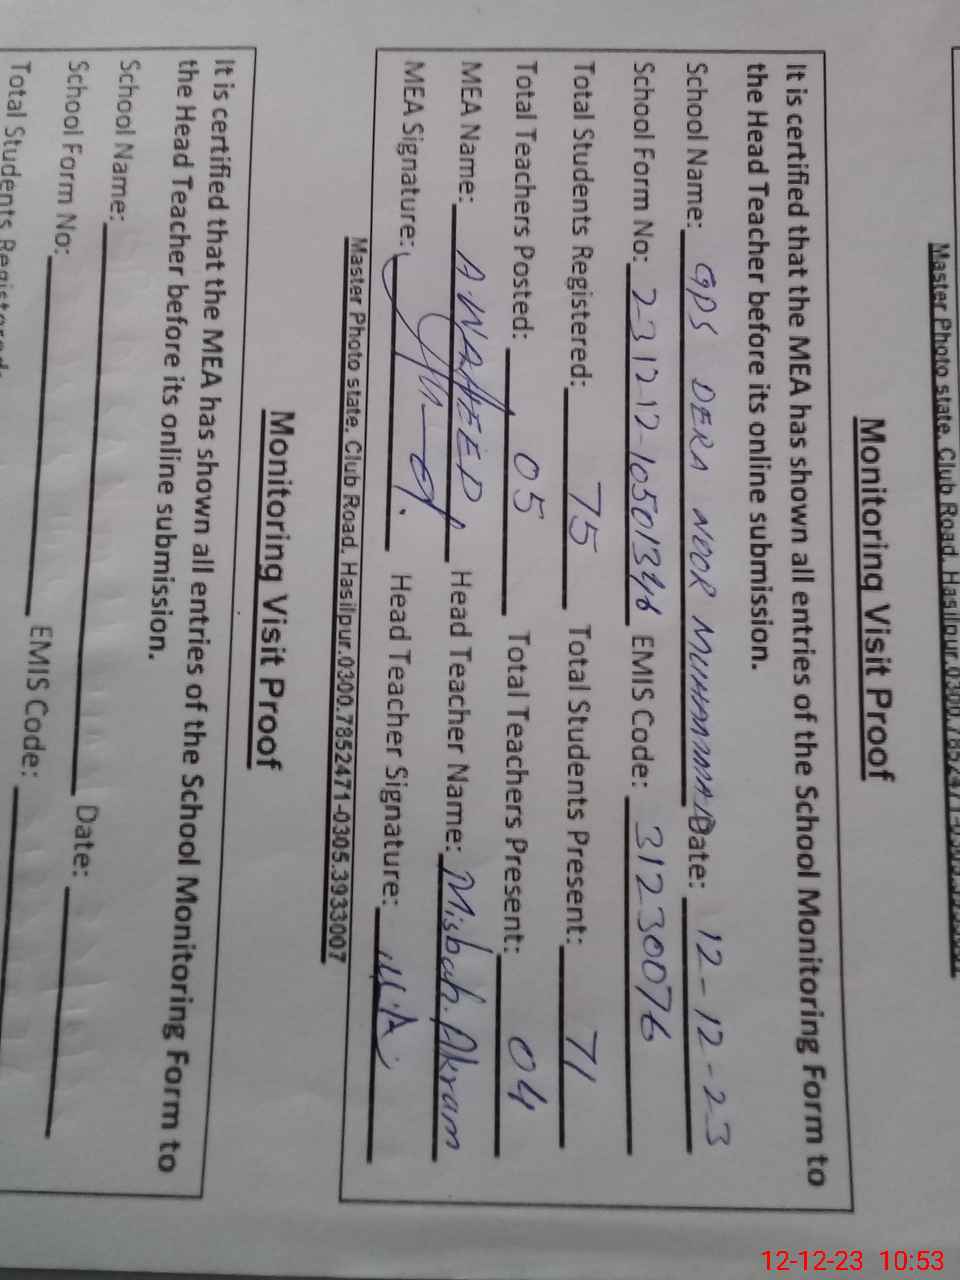 Master Photo state. Club Road. Hasilpur.0300.7852471-0305.3933007
Monitoring Visit Proof
It is certified that the MEA has shown all entries of the School Monitoring Form to
the Head Teacher before its online submission.
School Name: GPS DERA NOOR MUHAMMAD Date: 12-12-23
School Form No: 2312-12-10501346 EMIS Code: 31230076
Total Students Registered: 75 Total Students Present: 71
Total Teachers Posted: 05 Total Teachers Present: 04
MEA Name: A.WAHEED Head Teacher Name: Misbah.Akram
MEA Signature: Head Teacher Signature: M.A
Master Photo state. Club Road. Hasilpur.0300.7852471-0305.3933007
Monitoring Visit Proof
It is certified that the MEA has shown all entries of the School Monitoring Form to
the Head Teacher before its online submission.
School Name: Date:
School Form No: EMIS Code:
Total Students Registered:
12-12-23 10:53